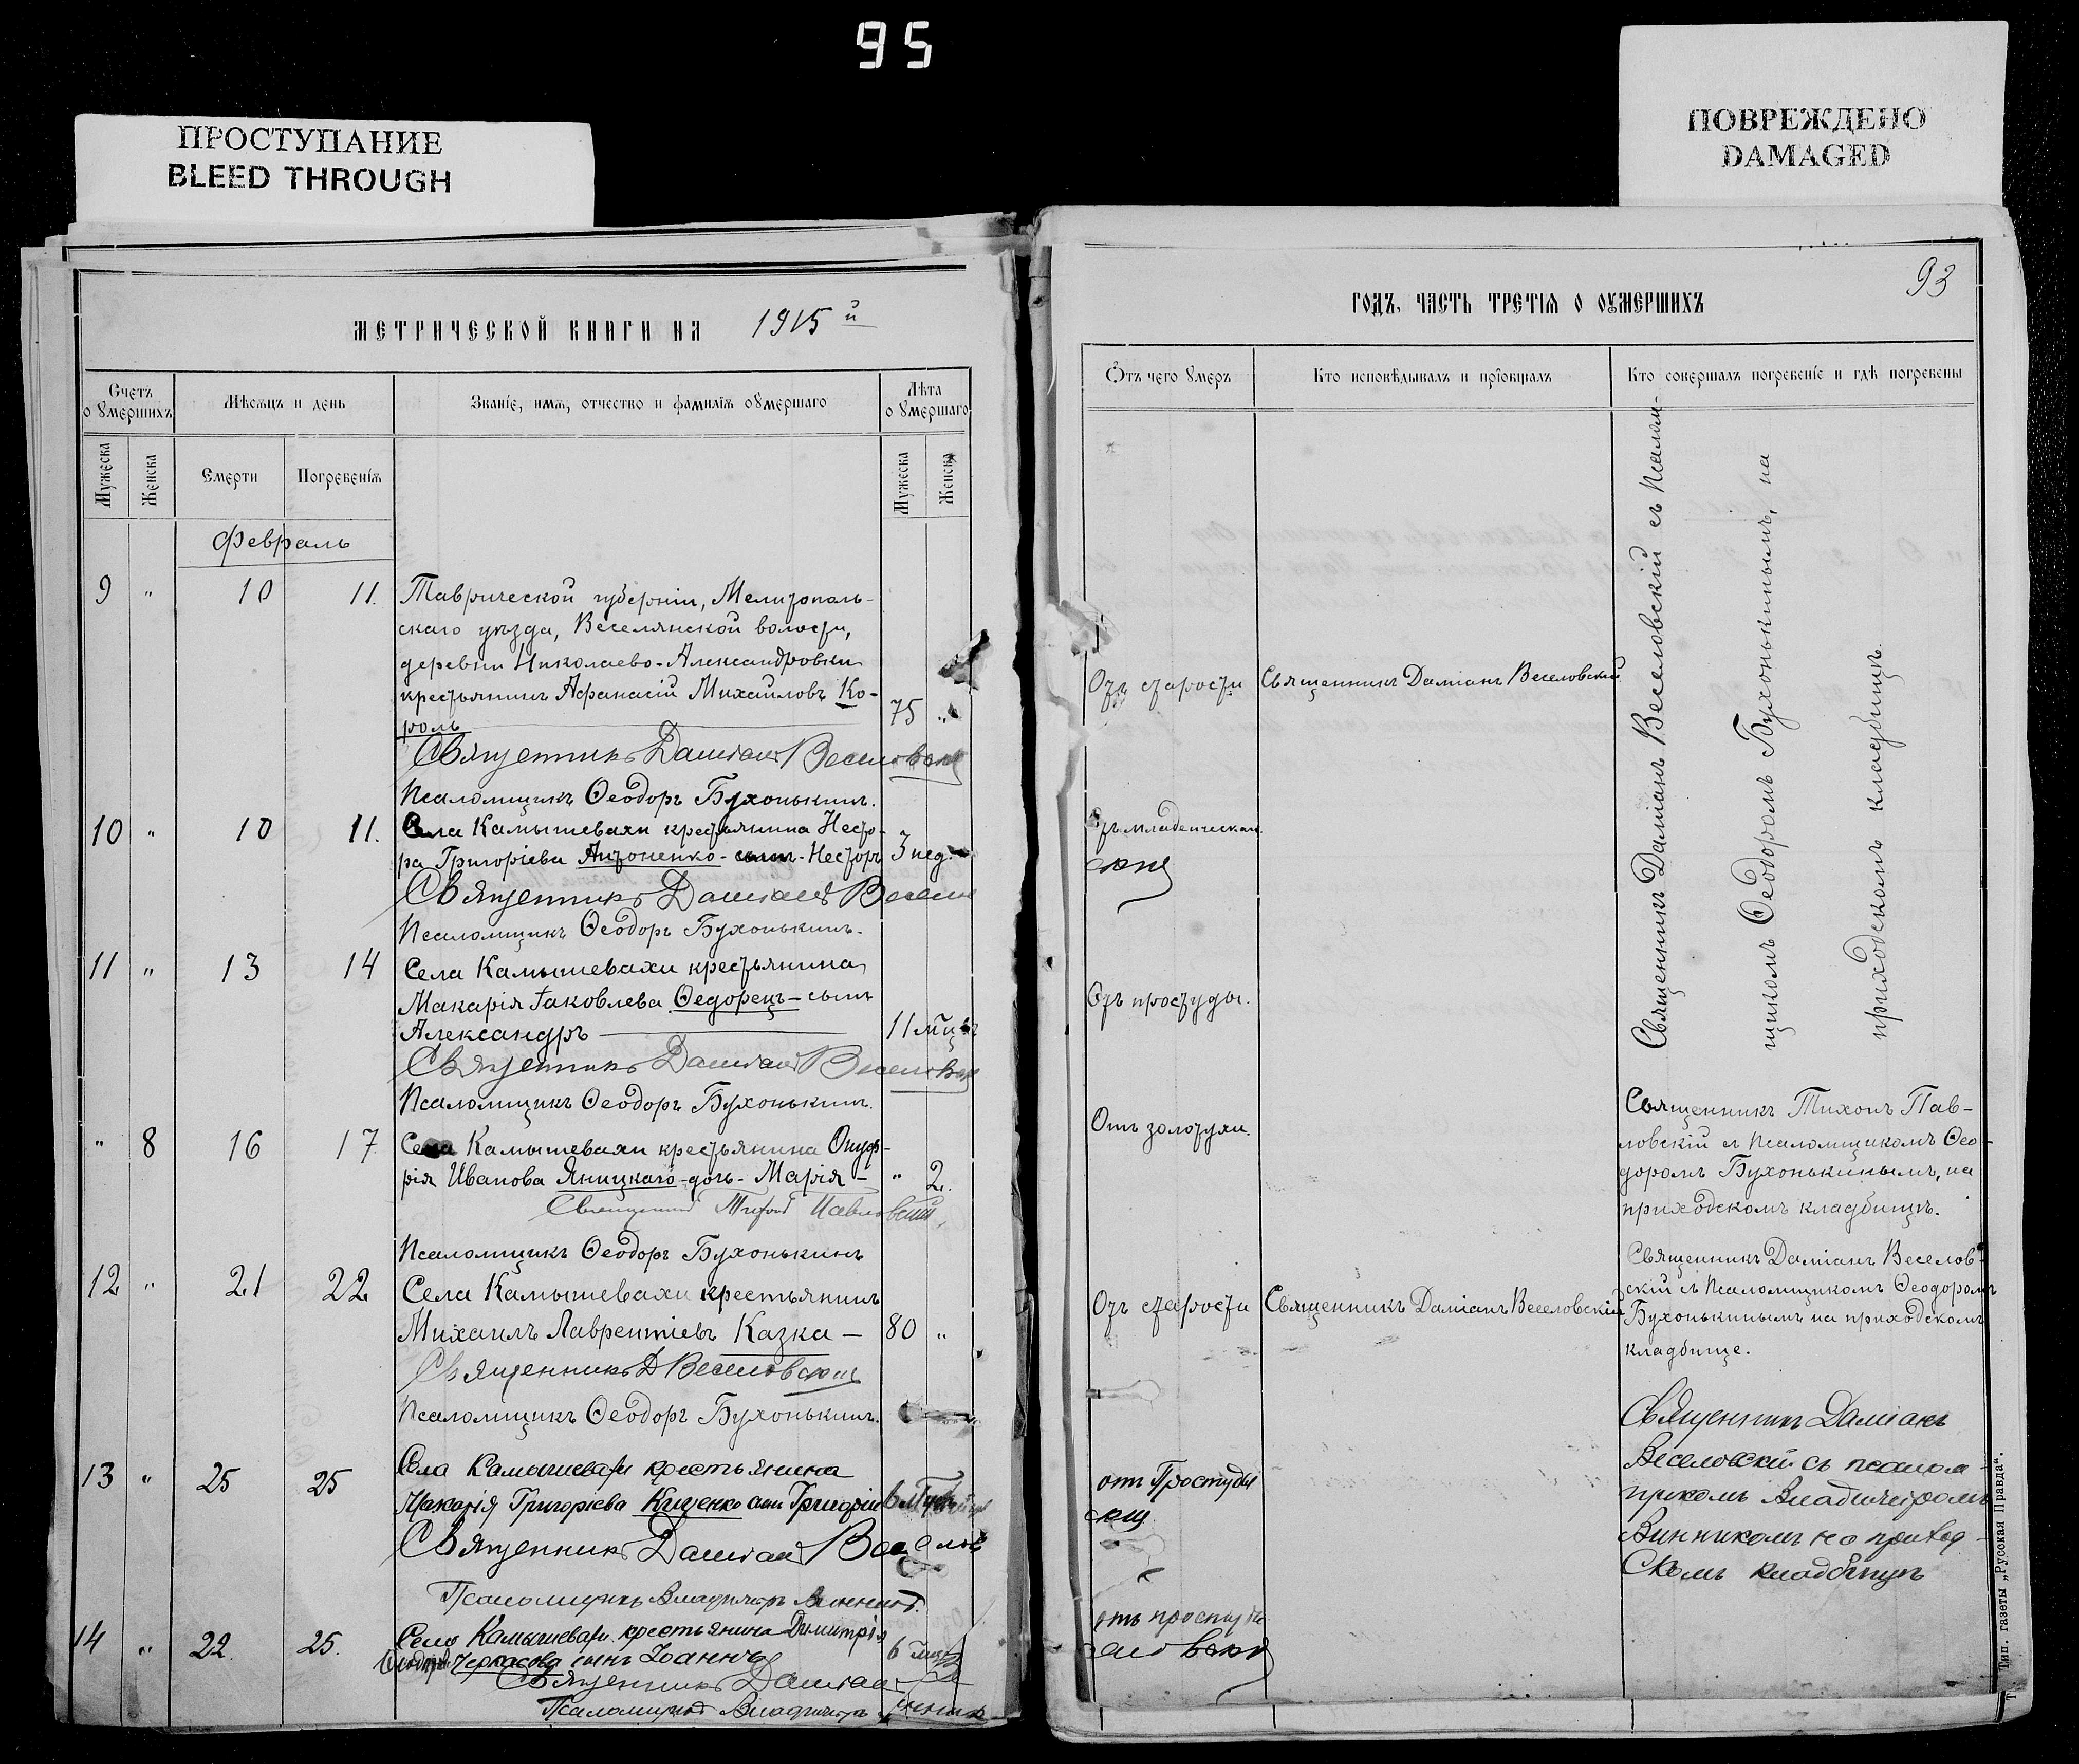 95
ПРОСТУПАНИЕ
BLEED THROUGH
ПОВРЕЖДЕНО
DAMAGED
МЕТРИЧЕСКОЙ КНИГИ НА 1915й
Счетъ о умершихъ
Мѣсяцъ и день
Званіе, имя, отчество и фамилія умершаго
Лѣта о умершаго
Мужеска
Женска
Смерти
Погребенія
Мужеска
Женска
Февраль
9 " 10 11. Таврической губерніи, Мелитополь-
скаго уѣзда, Веселянской волости,
деревни Николаево-Александровки
крестьянинъ Афанасій Михайловъ Ко-
роль 75 "
Священникъ Даміанъ Веселовскій
Псаломщикъ Ѳеодоръ Бухонькинъ.
10 " 10 11. Села Камышевахи крестьянина Несто-
ра Григоріева Антоненко - сынъ - Несторъ 3 нед.
Священникъ Даміанъ Весел
Псаломщикъ Ѳеодоръ Бухонькинъ.
11 " 13 14 Села Камышевахи крестьянина
Макарія Іаковлева Ѳедорецъ - сынъ
Александръ 11 мцъ
Священникъ Даміанъ Веселовск
Псаломщикъ Ѳеодоръ Бухонькинъ.
" 8 16 17. Села Камышевахи крестьянина Онуф-
рія Иванова Яницкаго - дочь - Марія - " 2.
Священникъ Тихонъ Павловскій,
Псаломщикъ Ѳеодоръ Бухонькинъ
12 " 21 22 Села Камышевахи крестьянинъ
Михаилъ Лаврентіевъ Казка - 80 "
Священникъ Д Веселовскій
Псаломщикъ Ѳеодоръ Бухонькинъ.
13 " 25 25 Села Камышевахи крестьянина
Макарія Григоріева Куценко сынъ Григорій 6
Священникъ Даміанъ Веселов
Псаломщикъ Владимиръ Винник
14 " 22 25. Села Камышевахи крестьянина Димитрія
Черкасова сынъ Іоаннъ 6
Священникъ Даміан
Псаломщикъ Владимиръ Винник
93
ГОДЪ, ЧАСТЬ ТРЕТІЯ О ОУМЕРШИХЪ
Отъ чего умеръ
Кто исповѣдывалъ и пріобщалъ
Кто совершалъ погребеніе и гдѣ погребены
Отъ старости Священникъ Даміанъ Веселовскій
Отъ младенческой
скій
Отъ простуды.
Отъ золотухи.
Отъ старости Священникъ Даміанъ Веселовскій
отъ Простуды
скій
отъ простуды
еловскій
Священникъ Даміанъ Веселовскій съ Псалом-
щикомъ Ѳеодоромъ Бухонькинымъ, на
приходскомъ кладбищѣ.
Священникъ Тихонъ Пав-
ловскій съ Псаломщикомъ Ѳео-
доромъ Бухонькинымъ, на
приходскомъ кладбищѣ.
Священникъ Даміанъ Веселов-
скій съ Псаломщикомъ Ѳеодоромъ
Бухонькинымъ на приходскомъ
кладбище.
Священникъ Даміанъ
Веселовскій съ псалом-
щикомъ Владимиромъ
Винникомъ на приход-
скомъ кладбищѣ
Тип. газеты „Русская Правда“.